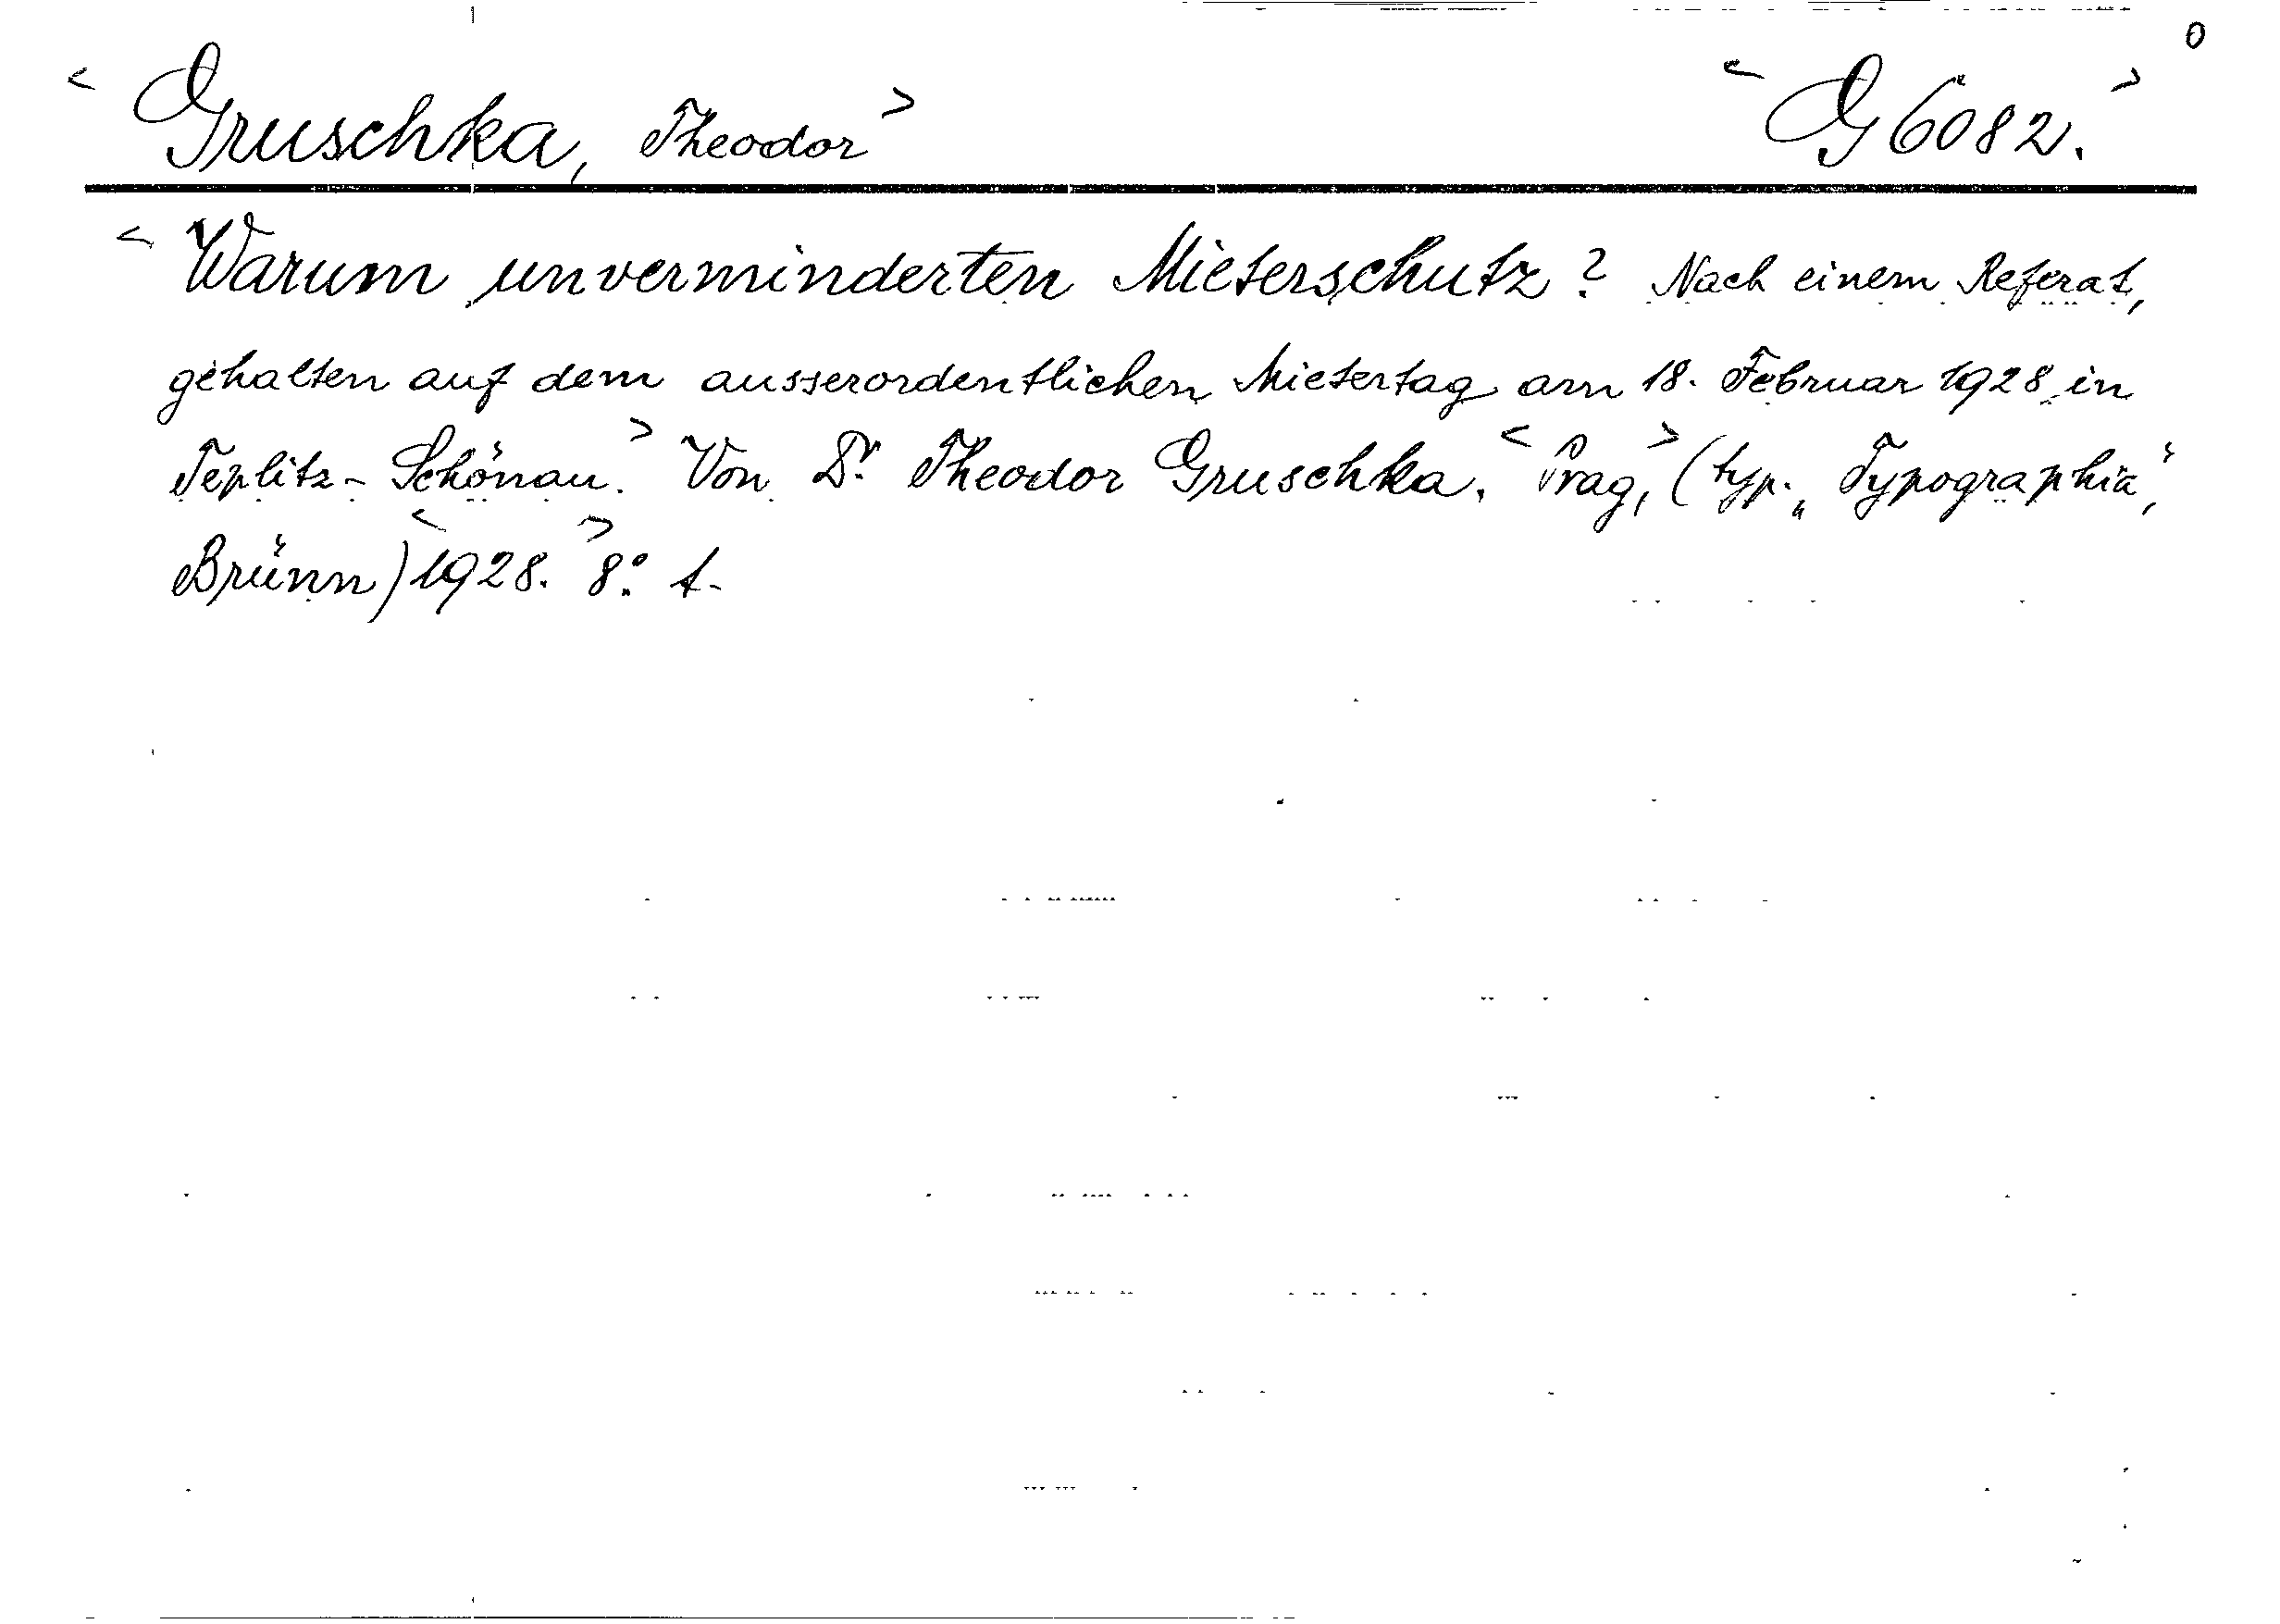 0
< Gruschka, Theodor > < G 6082. >
< Warum unverminderten Mieterschutz? Nach einem Referat,
gehalten auf dem ausserordentlichen Mietertag am 18. Februar 1928 in
Teplitz-Schönau. > Von Dr. Theodor Gruschka. < Prag, > (typ. „Typographia",
Brünn) < 1928. > 8°. 1-